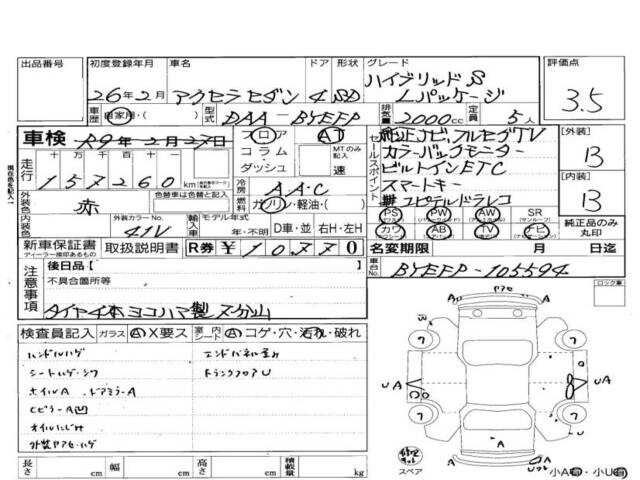 出品番号 初度登録年月 車名 ドア 形状 グレード 評価点
26年2月 アクセラセダン 4 SD ハイブリッドS Lパッケージ 3.5
車歴 自家用・( ) 型式 DAA-BYEFP 排気量 2000cc 定員 5人
車検 R9年2月27日 フロア AT 純正ナビ、フルセグTV [外装]
走行 十 万 千 百 十 コラム MTのみ記入 セールスポイント カラーバックモニター B
157260 km ダッシュ 速 ビルトインETC
外装色 赤 色替車は色替と記入 冷房 AAC スマートキー [内装]
燃料 ガソリン・軽油・( ) コムピテルドラレコ B
内装色 外装カラーNo. 41V 輸入車 モデル年式 年・不明 D車・並 右H・左H
PS PW AW SR (サンルーフ) 純正品のみ丸印
カワ AB TV ナビ
新車保証書 取扱説明書 R券 ¥10,770 名変期限 月 日迄
ディーラー捺印あるもの
注意事項 後日品[ 車台No. BYEFP-105594
不具合箇所等 ロック車
タイヤ4本ヨコハマ製
検査員記入 ガラス A X要ス 室内シート A コゲ・穴・汚れ・破れ
ハンドルハゲ エンドパネル歪み
シートハゲ・シワ トランクフロアU
ホイルA ドアミラーA
CピラーA凹
オイルにじみ
外装ヤケ・ハゲ
長さ cm 幅 cm 高さ cm 積載量 kg
スペア 小A有・小U有